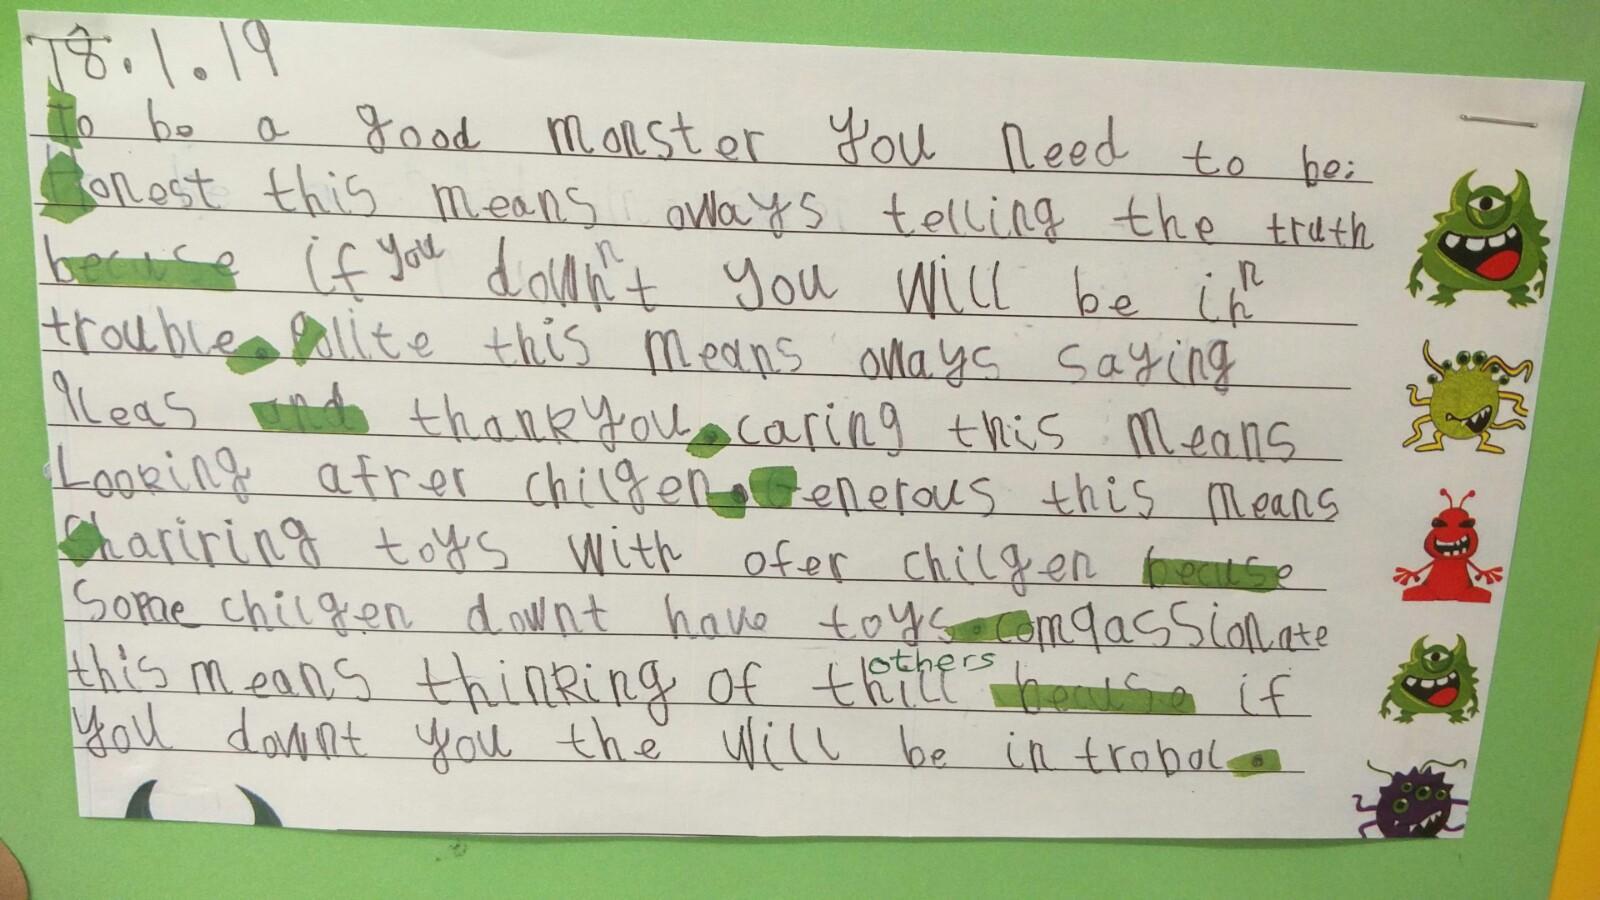 18.1.19
To be a good monster you need to be:
Honest this means ollways telling the truth
becuse if you downn't you will be in
trouble. Polite this means ollways saying
Pleas and thankyou. caring this means
Looking afrer chilgen. Generous this means
Shariring toys with ofer chilgen becuse
Some chilgen downt have toys. compassionate
this means thinking of others becuse if
you downt you the will be in trobol.